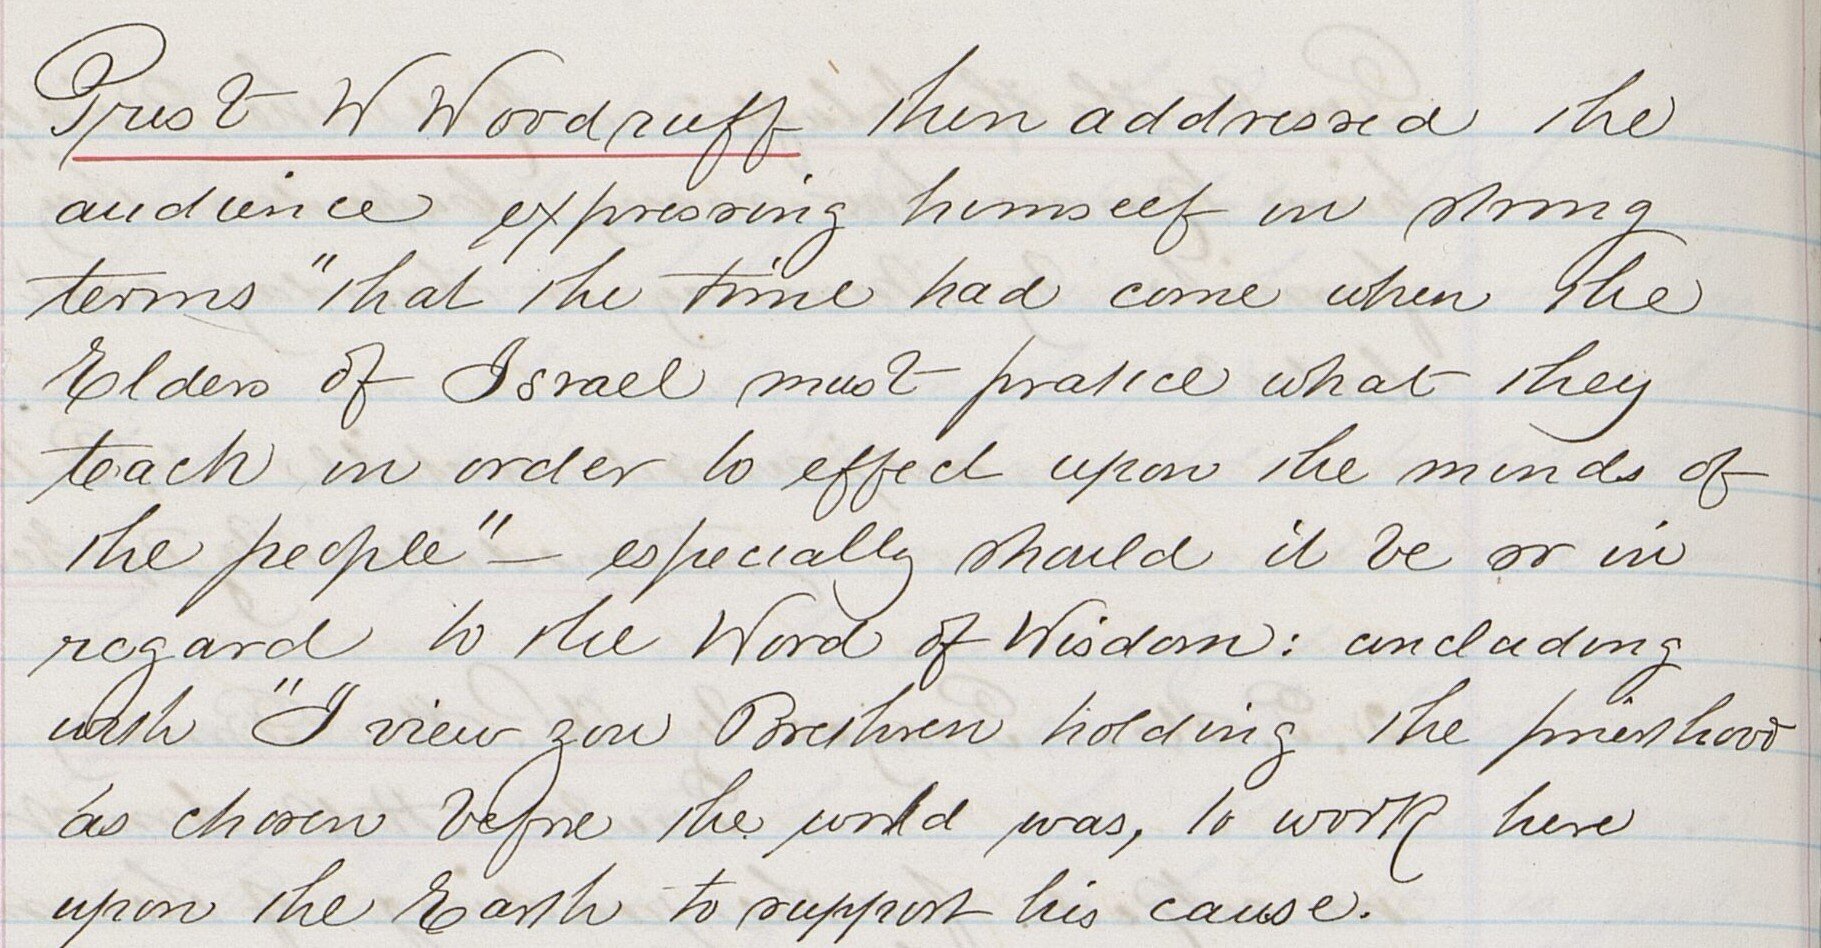 Prest W Woodruff then addressed the
audience expressing himself in strong
terms "that the time had come when the
Elders of Israel must pratice what they
teach in order to effect upon the minds of
the people" — especially should it be so in
regard to the Word of Wisdom: concluding
with "I view you Brethren holding the priesthood
as chosen before the world was, to work here
upon the Earth to support his cause.